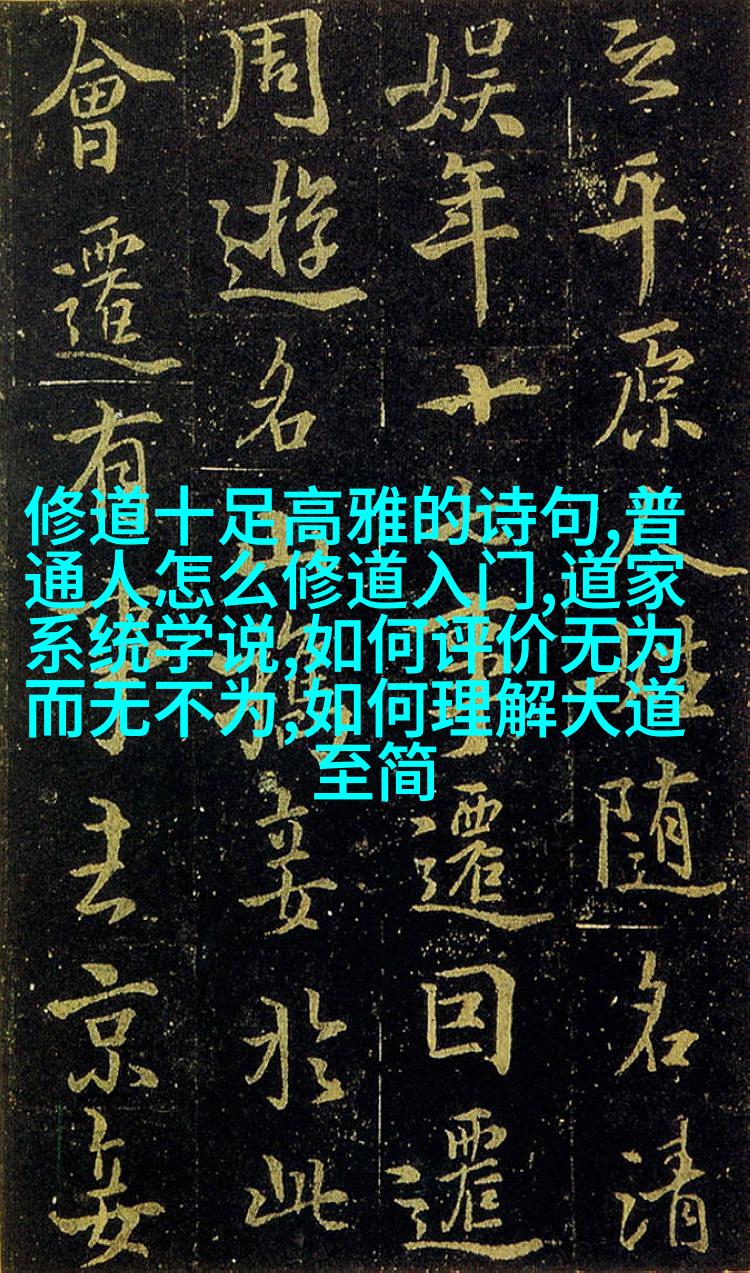 修道十足高雅的诗句,普
通人怎么修道入门,道家
系统学说,如何评价无为
而无不为,如何理解大道
至简
之平原人姓随名清
娱年十七事遷因遷
周遊名山攜妾於此
會遷有事去京妾